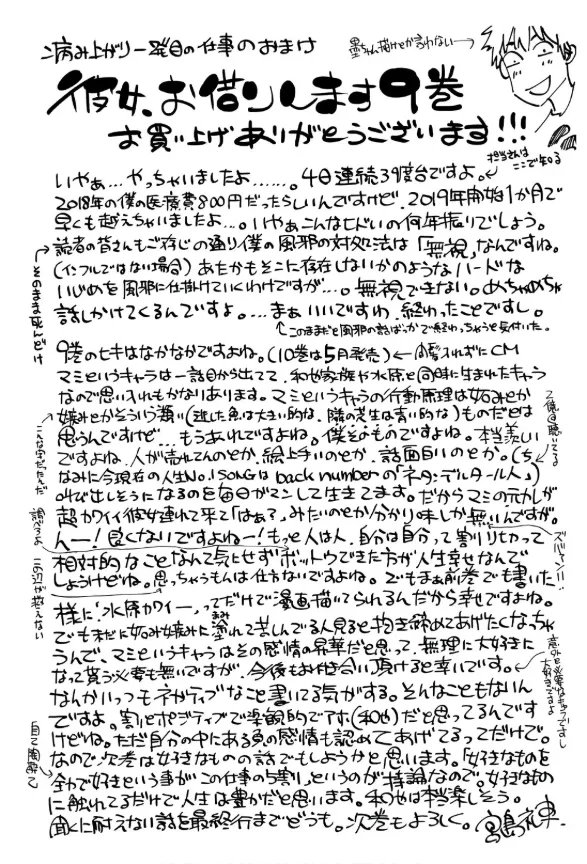 病み上がり一発目の仕事のおまけ
墨ちゃん描けとか言わない→
彼女、お借りします9巻
お買い上げありがとうございます!!!
担当さんはここで知る
いやぁ…やっちゃいましたよ……。4日連続39度台ですよ。
2018年の僕の医療費800円だったらしいんですけど、2019年開始1か月で
早くも越えちゃいましたよ…。いやぁこんなヒドいの何年振りでしょう。
読者の皆さんもご存じの通り僕の風邪の対処法は「無視」なんですね。
(インフルではない場合)あたかもそこに存在しないかのようなハードな
いじめを風邪に仕掛けていくわけですが…。無視できない。めちゃめちゃ
話しかけてくるんですよ。…まぁいいですわ、終わったことですし。
そのまま死んどけ
↑このままだと風邪の話ばっかで終わっちゃうと気付いた。
9巻のヒキはなかなかですよね。(10巻は5月発売)←間髪入れずにCM
マミというキャラは一話目から出てて、和也家族や水原と同時に生まれたキャラ
なので思い入れもかなりあります。マミというキャラの行動原理は妬みとか
嫉みとかそういう類い(逃した魚は大きい的な、隣の芝生は青い的な)ものだとは
思うんですけど…もうあれですよね。僕そのものですよね。本当羨しい
ですよね、人が売れてんのとか、絵上手いのとか、話面白いのとか。(ち
なみに今現在の人生No.1 SONGはback numberの「ネタンデルタール人」)
叫び出しそうになるのを毎日ガマンして生きてます。だからマミの元カレが
超カワイイ彼女連れて来て「はぁ?」みたいのとか分かり味しか無いんですが。
んー!良くないですよねー!もっと人は人、自分は自分って割り切って
相対的なことなんて気にせずボットウできた方が人生幸せなんで
しょうけどね。思っちゃうもんは仕方ないですよね。でもまぁ前巻でも書いた
様に「水原カワイー」ってだけで漫画描いてられるんだから幸せですよね。
でも未だに妬み嫉みに塗れて苦しんでる人見ると抱き締めてあげたくなっちゃ
うんで、マミというキャラはその感情の昇華だと思って、無理に大好きに
なって貰う必要も無いですが、今後もお付き合い頂けると幸いです。
なんかいっつもネガティブなこと書いてる気がする。そんなこともないん
ですよ。割とポジティブで楽観的です(和也)だと思ってるんです
けどね。ただ自分の中にある負の感情も認めてあげてるってだけで。
なので次巻は好きなものの話でもしようかと思います。「好きなものを
全力で好きという事がこの仕事の5割」というのが持論なので。好きなもの
に触れてるだけで人生は豊かだと思います。和也は本当楽しそう。
聞くに耐えない話を最終行までどうも。次巻もよろしく。宮島礼吏